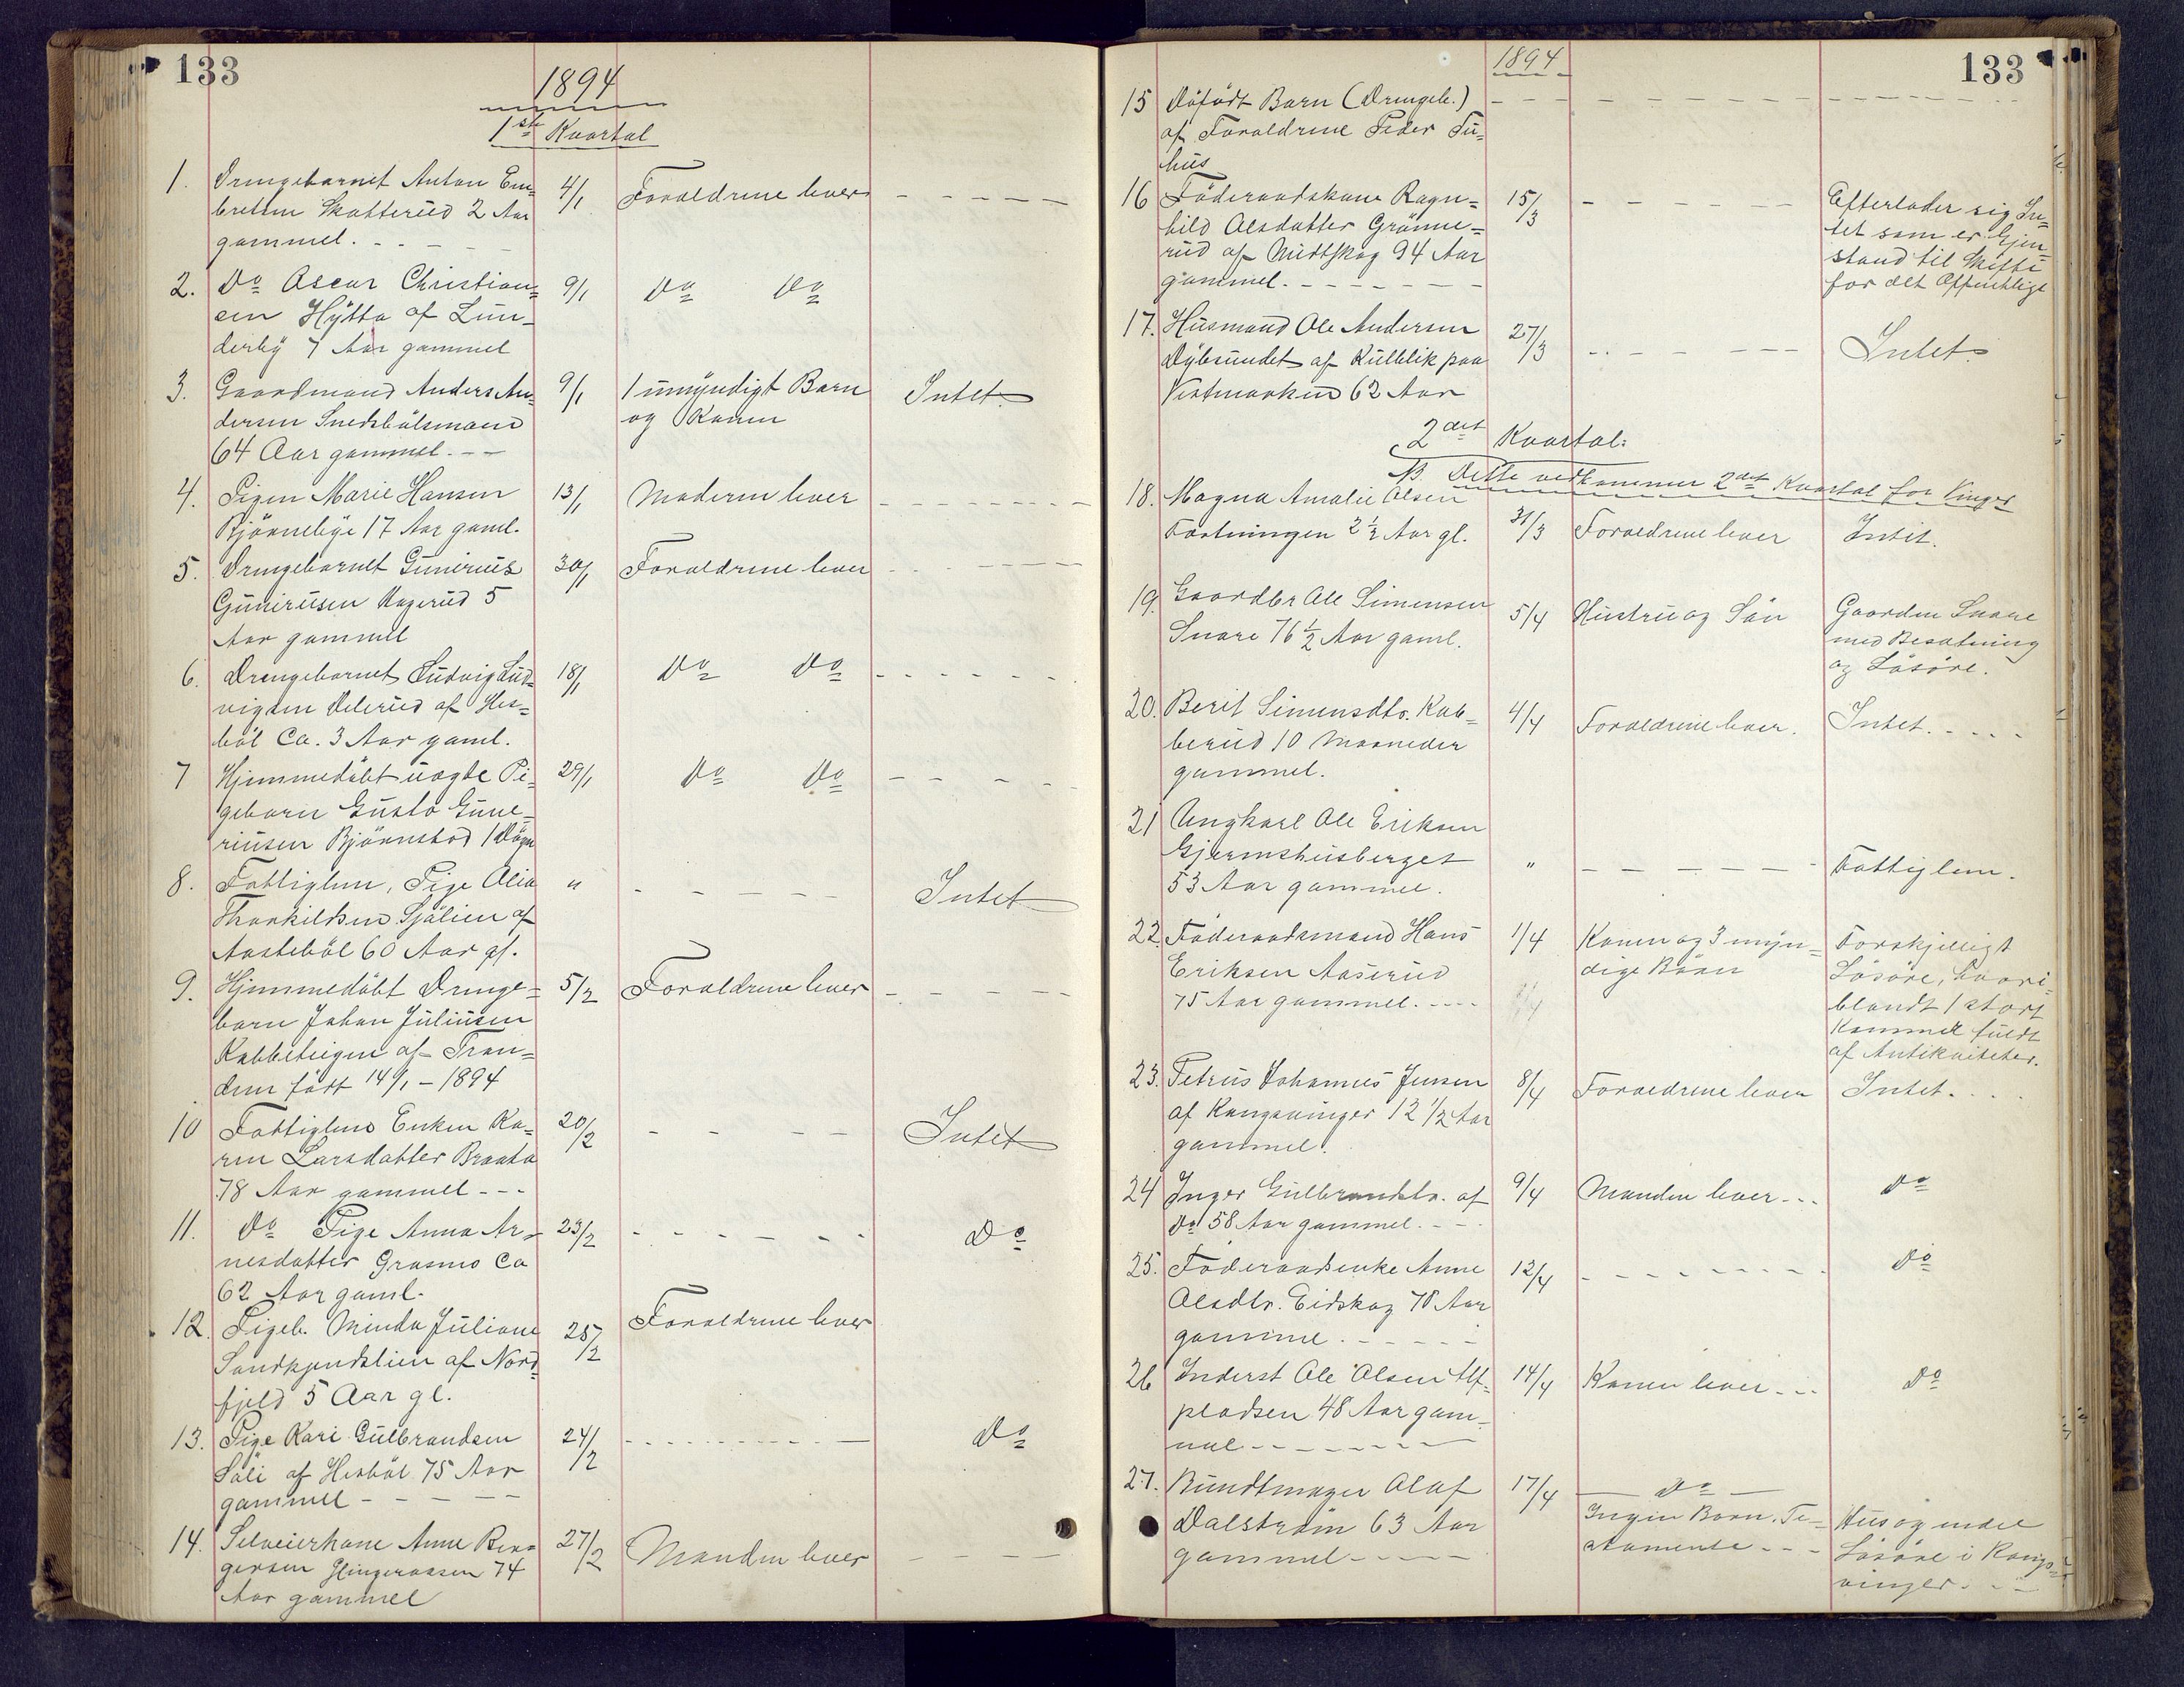 133
1894
1ste Kvartal
1. Drengebarnet Anton Em=
bretsen Skatterud 2 Aar
gammel. - - - -
4/1
Forældrene lever - - - - -
2. Do Oscar Christian=
sen Hytta af Lun=
derby 7 Aar gammel
9/1
Do Do
3. Gaardmand Anders An=
dersen Snedsbölsmoen
64 Aar gammel. - -
9/1
1 umyndigt Barn
og Konen
Intet
4. Pigen Marie Hansen
Bjørnebye 17 Aar gaml.
13/1
Moderen lever - - - - - -
5. Drengebarnet Gunerius
Guneriusen Hagerud 5
Aar gammel
30/1
Forældrene lever - - - - -
6. Drengebarnet Ludvig Lud=
vigsen Delerud af Hes=
böl Ca. 3 Aar gaml.
18/1
Do Do - - - - - -
7 Hjemmedöbt uægte Pi=
gebarn Gusta Gune=
riusen Bjørnstad 1 Døgn
29/1
Do Do - - - - -
8. Fattiglem, Pige Olia
Thorkildsen Sjølien af
Aasteböl 60 Aar gl.
"
- - - - -
Intet
9. Hjemmedöbt Drenge=
barn Johan Juliusen
Kabbeteigen af Tran=
dem født 14/1 - 1894
5/2
Forældrene lever - - - - -
10 Fattiglem Enken Ka=
ren Larsdatter Braata
78 Aar gammel - - -
20/2
- - - -
Intet
11. Do Pige Anna Ar=
nesdatter Grasmo Ca
62 Aar gaml.
23/2
- - - - - - -
Do
12. Pigeb. Minda Juliane
Sandkjendslien af Nord=
fjeld 5 Aar gl.
25/2
Forældrene lever
13. Pige Kari Gulbrandsen
Søli af Hesböl 75 Aar
gammel - - - - -
24/2
- - - - - - - -
Do
14. Selveierkone Anne Ber=
gersen Glingeraasen 74
Aar gammel
27/2
Manden lever - - - -
133
1894
15 Dødfødt Barn (Drengeb.)
af Forældrene Peder Tu=
hus
- - - - - - - - - -
16 Föderaadskone Ragn=
hild Olsdatter Grønne=
rud af Midtskog 94 Aar
gammel. - - - - - - -
15/3
- - - - - -
Efterlader sig In=
tet som er Gjen=
stand til Skifte
for det Offentlige
17. Husmand Ole Andersen
Dybsundet af Kulblik paa
Vestmarken 62 Aar
27/3
- - - - - -
Intet
2det Kvartal:
NB Dette vedkommer 2det Kvartal for Vinger
18. Magna Amalie Olsen
Fæstningen 2 1/2 Aar gl.
31/3
Forældrene lever
Intet.
19. Gaardbr Ole Simensen
Snare 76 1/2 Aar gaml.
5/4
Hustru og Sön
Gaarden Snare
med Besætning
og Lösöre.
20. Berit Simensdtr. Kab=
berud 10 Maaneder
gammel.
4/4
Forældrene lever.
Intet. - - - -
21 Ungkarl Ole Eriksen
Gjermshusberget
53 Aar gammel.
"
- - - - - -
Fattiglem.
22 Föderaadsmand Hans
Eriksen Aaserud
75 Aar gammel. - - - -
1/4
Konen og 3 myn=
dige Börn
Forskjelligt
Lösöre, hvori=
blandt 1 stort
Kammer fuldt
af Antikviteter.
23. Petrus Johannes Jensen
af Kongsvinger 12 1/2 Aar
gammel.
8/4
Forældrene lever
Intet. - - -
24 Inger Gulbrandsdtr. af
Do 58 Aar gammel. - - -
9/4
Manden lever - - -
Do
25. Föderaadsenke Anne
Olsdtr. Eidskog 78 Aar
gammel. - - - - - -
12/4
- - - - - - - -
Do
26 Inderst Ole Olsen Alf=
pladsen 48 Aar gam=
mel - - - - - - -
14/4
Konen lever - - -
Do
27. Bundtmager Olaf
Dalstrøm 63 Aar
gammel - - - - -
17/4
— Do —
Ingen Börn. Te=
stamente - - -
Hus og endel
Lösöre i Kongs=
vinger. - -